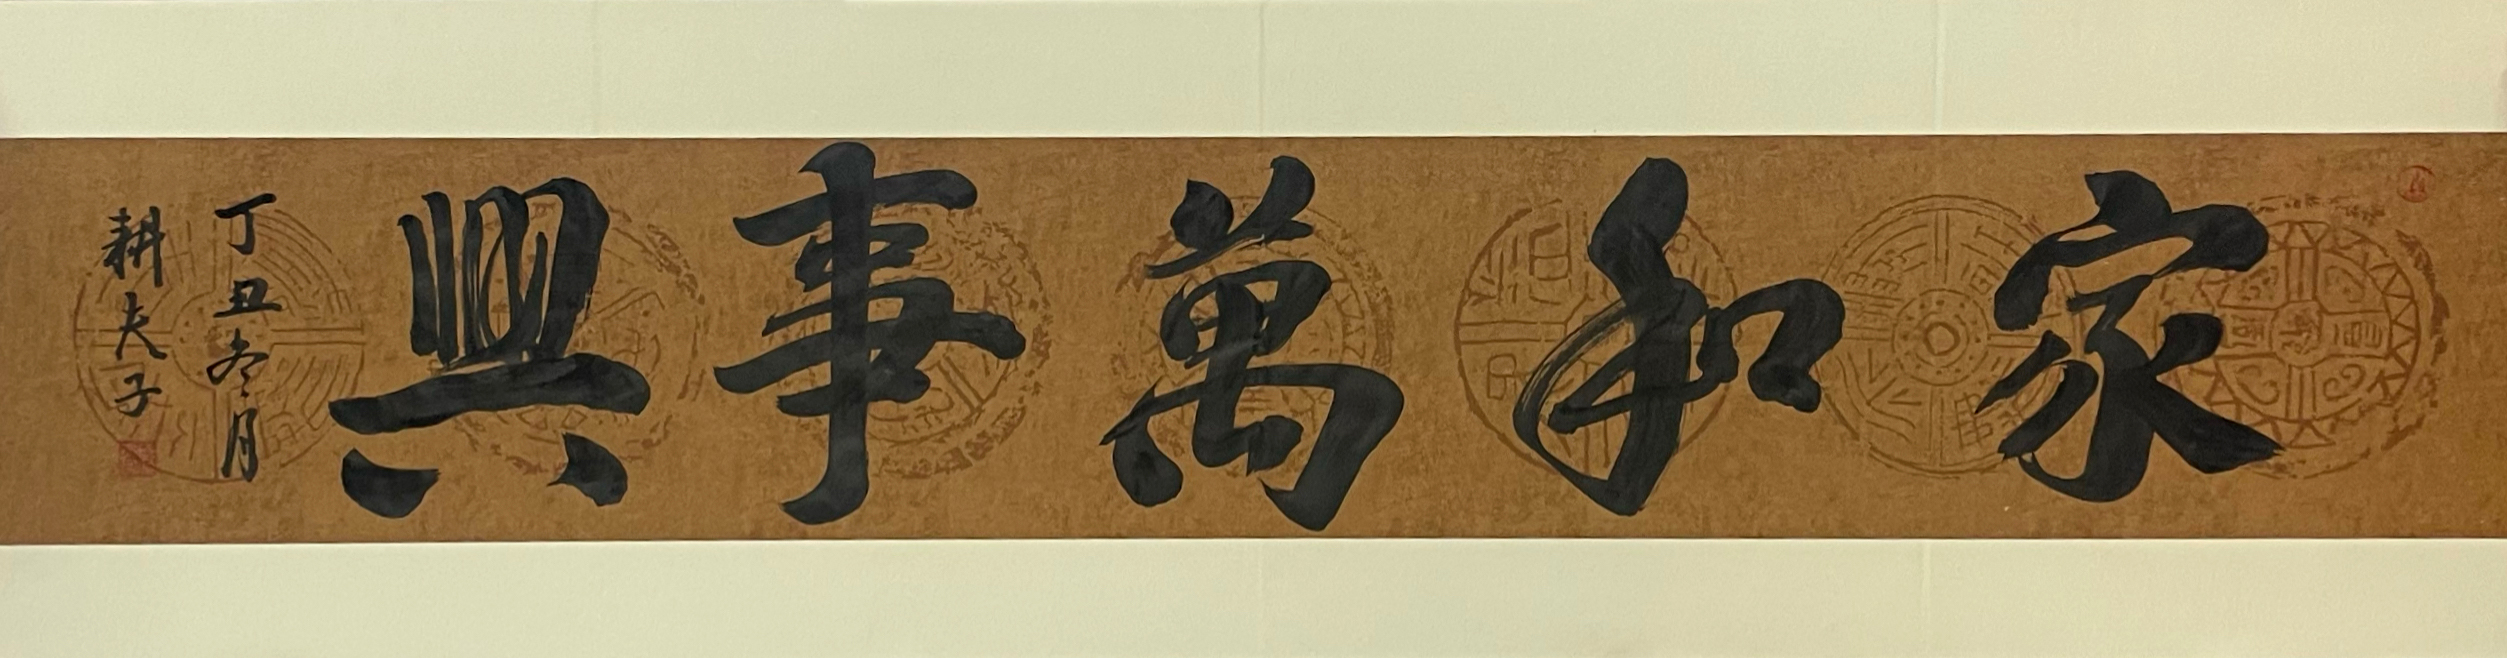 家和萬事興
丁丑冬月
耕夫子